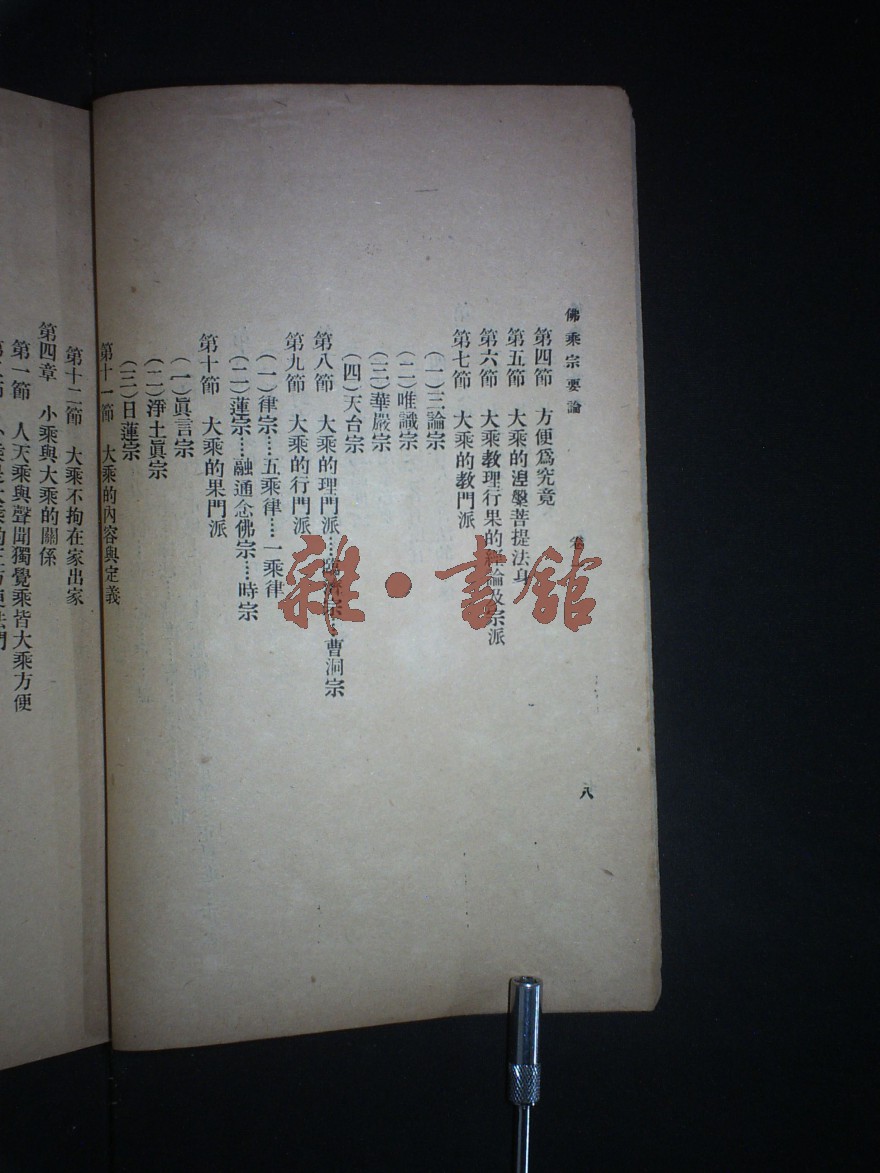 佛乘宗要論
八
第四節 方便爲究竟
第五節 大乘的湼槃菩提法身
第六節 大乘教理行果的經論及宗派
第七節 大乘的教門派
(一)三論宗
(二)唯識宗
(三)華嚴宗
(四)天台宗
第八節 大乘的理門派……臨濟宗……曹洞宗
第九節 大乘的行門派
(一)律宗……五乘律……一乘律
(二)蓮宗……融通念佛宗……時宗
第十節 大乘的果門派
(一)眞言宗
(二)淨土眞宗
(三)日蓮宗
第十一節 大乘的內容與定義
第十二節 大乘不拘在家出家
第四章 小乘與大乘的關係
第一節 人天乘與聲聞獨覺乘皆大乘方便
雜·書館